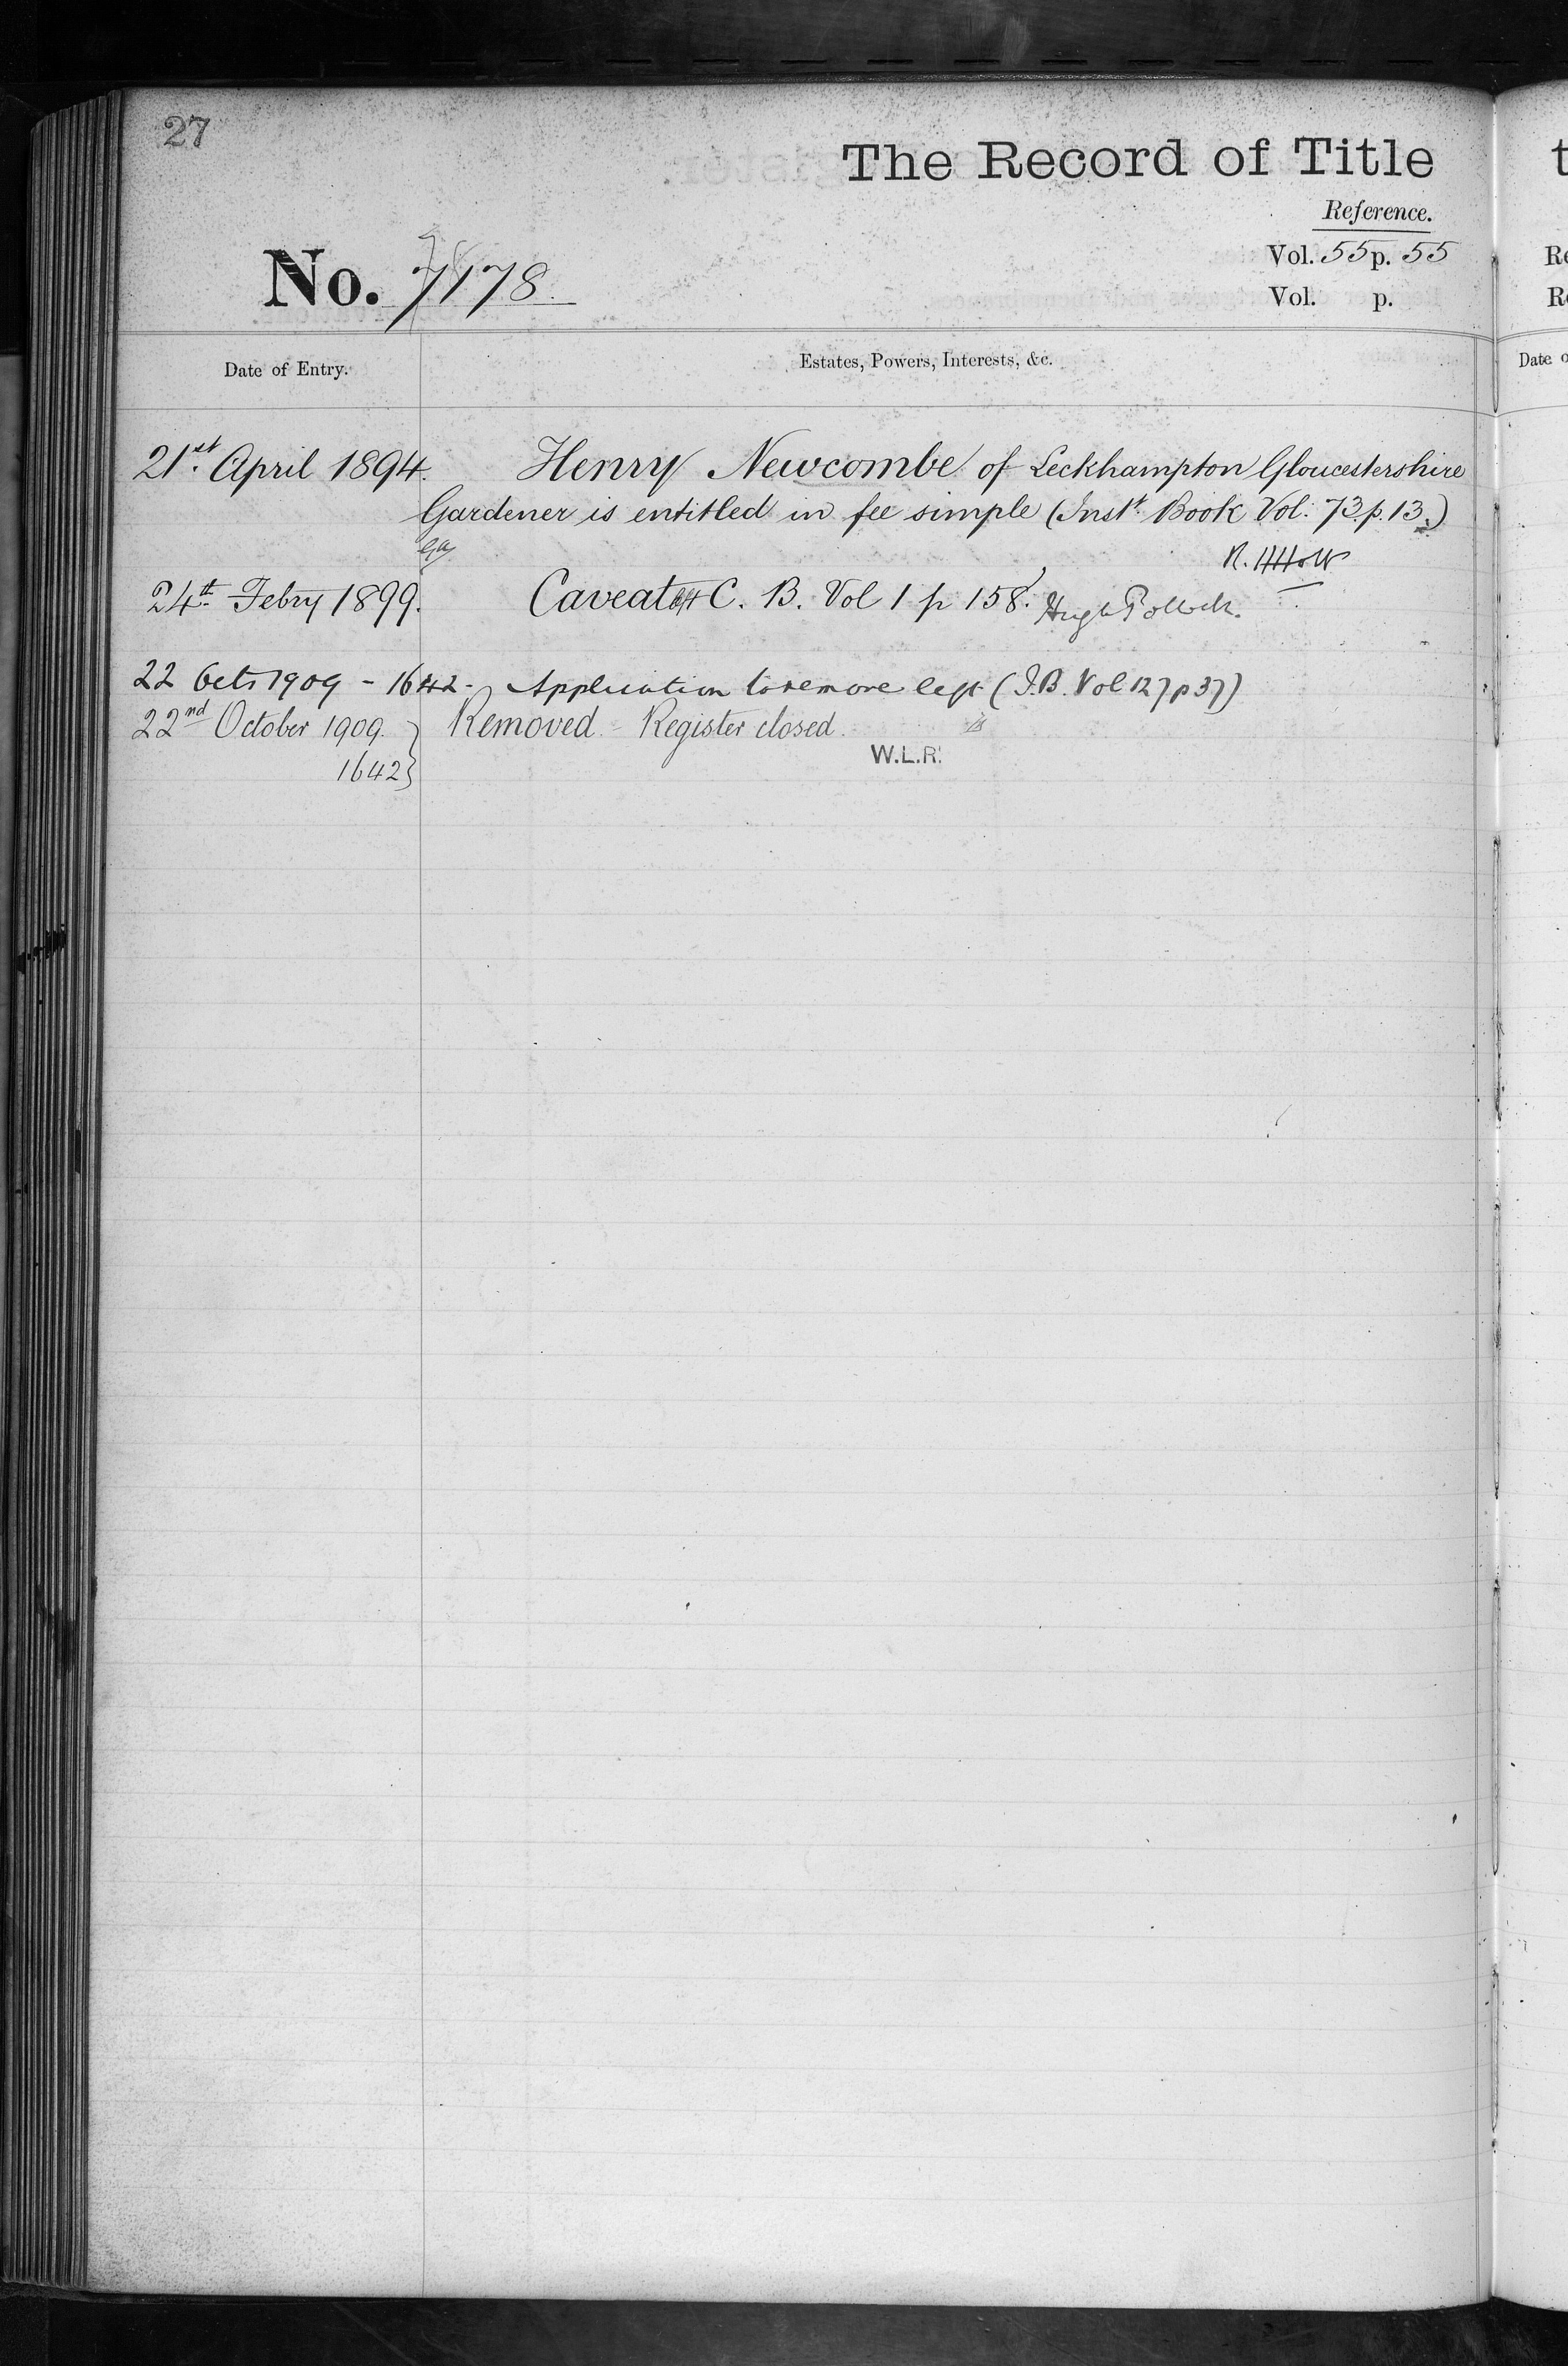 27
The Record of Title
Reference.
No. 7178.
Vol. 55 p. 55
Vol. p.
Date of Entry.
Estates, Powers, Interests, &c.
21st April 1894.
Henry Newcombe of Leckhampton Gloucestershire
Gardener is entitled in fee simple (Inst. Book Vol. 73. p. 13.)
R. H Holt
24th Febry 1899.
Caveat C. B. Vol 1 p 158. Hugh Pollock.
22 Oct 1909 - 1642 - Application to remove left (I.B. Vol 127 p 37)
22nd October 1909. Removed - Register closed.
1642}
W.L.R.
t
Re
R
Date o